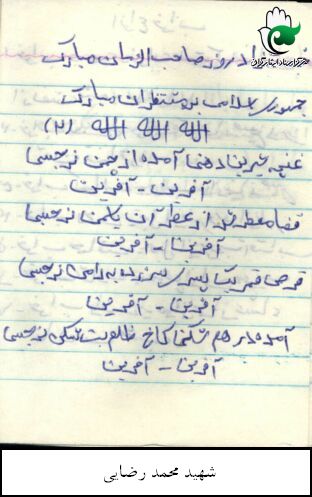 زادروز صاحب الزمان مبارک
جمهوری اسلامی بر منتظران مبارک
الله الله الله (۲)
غنچه شیرین دهنا آمده از چمن نرجسی
آفرین - آفرین
فضا معطر شد از عطر آن یاسمن نرجسی
آفرین - آفرین
قرص قمر یک پسری سر زده به دامن نرجسی
آفرین - آفرین
آمده در هم شکند کاخ ظلم بت شکن نرجسی
آفرین - آفرین
شهید محمد رضایی